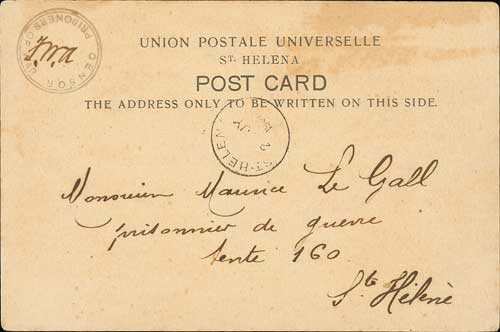 CENSOR PRISONERS OF
UNION POSTALE UNIVERSELLE
ST. HELENA
POST CARD
THE ADDRESS ONLY TO BE WRITTEN ON THIS SIDE.
ST. HELENA
Monsieur Maurice Le Gall
prisonnier de guerre
tente 160
Ste Hélène